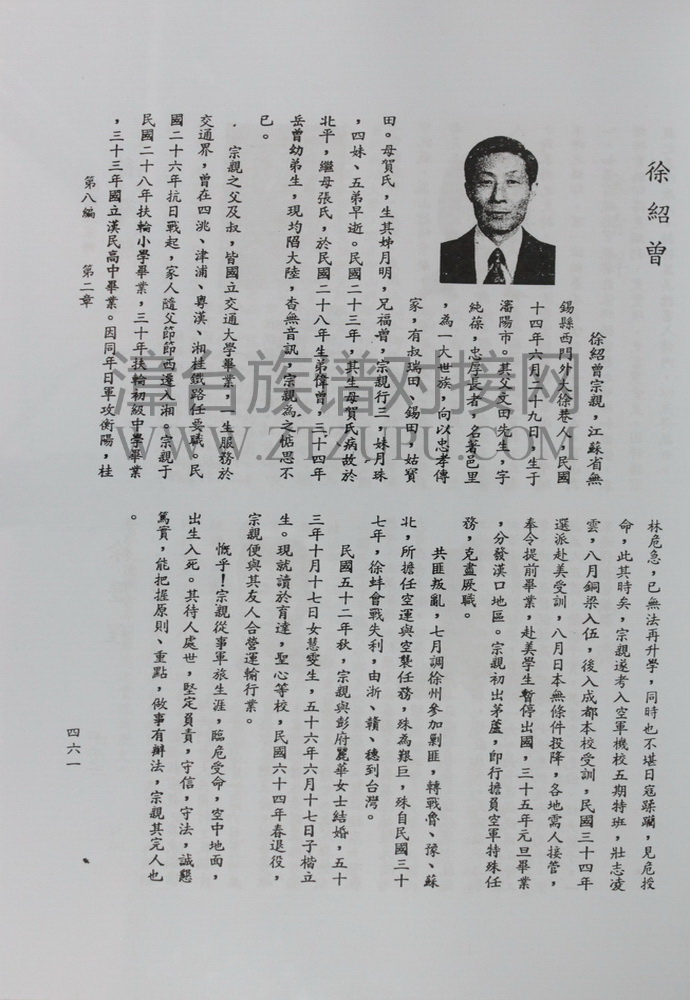 徐紹曾
徐紹曾宗親，江蘇省無
錫縣西門外大徐巷人，民國
十四年六月二十九日，生于
瀋陽市。其父文田先生，字
純葆，忠厚長者，名著邑里
，為一大世族，向以忠孝傳
家，有叔瑞田、錫田，姑寶
田。母賀氏，生其姊月明，兄福曾，宗親行三，妹月珠
，四妹、五弟早逝。民國二十三年，其生母賀氏病故於
北平，繼母張氏，於民國二十八年生弟偉曾，三十四年
岳曾幼弟生，現均陷大陸，杳無音訊，宗親為之惦思不
已。
宗親之父及叔，皆國立交通大學畢業，一生服務於
交通界，曾在四洮、津浦、粵漢、湘桂鐵路任要職。民
國二十六年抗日戰起，家人隨父節節西遷入湘。宗親于
民國二十八年扶輪小學畢業，三十年扶輪初級中學畢業
，三十三年國立漢民高中畢業。因同年日軍攻衡陽，桂
第八編　第二章
林危急，已無法再升學，同時也不堪日寇蹂躪，見危授
命，此其時矣，宗親遂考入空軍機校五期特班，壯志凌
雲，八月銅梁入伍，後入成都本校受訓，民國三十四年
選派赴美受訓，八月日本無條件投降，各地需人接管，
奉令提前畢業，赴美學生暫停出國，三十五年元旦畢業
，分發漢口地區。宗親初出茅蘆，即行擔負空軍特殊任
務，克盡厥職。
共匪叛亂，七月調徐州參加剿匪，轉戰魯、豫、蘇
北，所擔任空運與空襲任務，殊為艱巨，殊自民國三十
七年，徐蚌會戰失利，由浙、贛、穗到台灣。
民國五十二年秋，宗親與彭府麗華女士結婚，五十
三年十月十七日女慧雯生，五十六年六月十七日子楷立
生。現就讀於育達，聖心等校，民國六十四年春退役，
宗親便與其友人合營運輸行業。
慨乎！宗親從事軍旅生涯，臨危受命，空中地面，
出生入死。其待人處世，堅定負責，守信，守法，誠懇
篤實，能把握原則、重點，做事有辦法，宗親其完人也
。
四六一
法台族谱对接网
WWW.ZTZUPU.COM